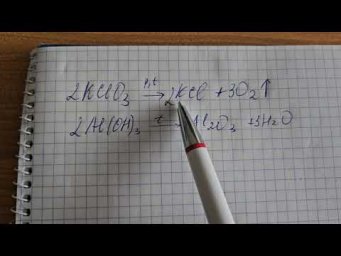 2KClO₃ →(p,t) 2KCl + 3O₂↑
2Al(OH)₃ →(t) Al₂O₃ + 3H₂O